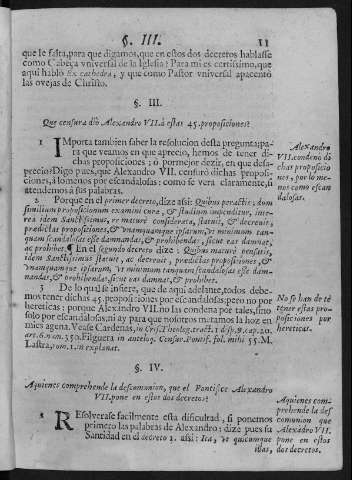 §. III.
11
que le falta, para que digamos, que en estos dos decretos hablasse
como Cabeça vniversal de la Iglesia? Para mi es certissimo, que
aqui hablo Ex cathedra, y que como Pastor vniversal apacentò
las ovejas de Christo.
§. III.
Que censura diò Alexandro VII. à estas 45. proposiciones?
1 IMporta tambien saber la resolucion desta pregunta; pa-
ra que veamos en que aprecio, hemos de tener di-
chas proposiciones; ò por mejor dezir, en que desa-
precio? Digo pues, que Alexandro VII. censurò dichas propo-
siciones, à lo menos por escandalosas: como se verà claramente, si
atendemos à sus palabras.
Alexandro
VII. condenò di
chas proposicio
nes, por lo me-
nos como escan
dalosas.
2 Porque en el primer decreto, dize assi: Quibus peractis, dum
similium propositionum examini cura, & studium impenditur, inte-
rea idem Sanctissimus, re mature considerata, statuit, & decreuit,
praedictas propositiones, & vnamquamque ipsarum, vt minimum tan-
quam scandalosas esse damnandas, & prohibendas, sicut eas damnat,
ac prohibet. ¶ En el segundo decreto dize: Quibus mature pensatis,
idem Sanctissimus statuit, ac decreuit, praedictas propositiones, &
vnamquamque ipsarum, vt minimum tanquam scandalosas esse dam-
nandas, & prohibendas, sicut eas damnat, & prohibet.
3 De lo qual se infiere, que de aqui adelante, todos debe-
mos tener dichas 45. proposiciones por escandalosas; pero no por
hereticas: porque Alexandro VII. no las condena por tales, sino
solo por escandalosas; ni ay para que nosotros metamos la hoz en
mies agena. Vease Cardenas, in Cris. Theolog. tract. 1. disp. 9. cap. 20.
art. 6. num. 350. Filguera in autelog. Censur. Pontif. fol. mihi 55. M.
Lastra, tom. 1. in explanat.
No se han de té
tener estas pro-
posiciones por
hereticas.
§. IV.
Aquienes comprehende la descomunion, que el Pontifice Alexandro
VII. pone en estos dos decretos?
1 REsolverase facilmente esta dificultad, si ponemos
primero las palabras de Alexandro; dize pues su
Santidad en el decreto 1. assi: Ita, vt quicumque
illas,
Aquienes com-
prehende la des
comunion que
Alexãdro VII.
pone en estos
dos decretos.